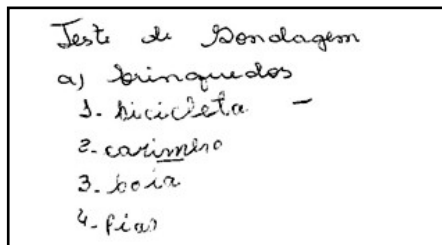 Teste de Sondagem
a) brinquedos
1. bicicleta –
2. carimero
3. boia
4. fiao